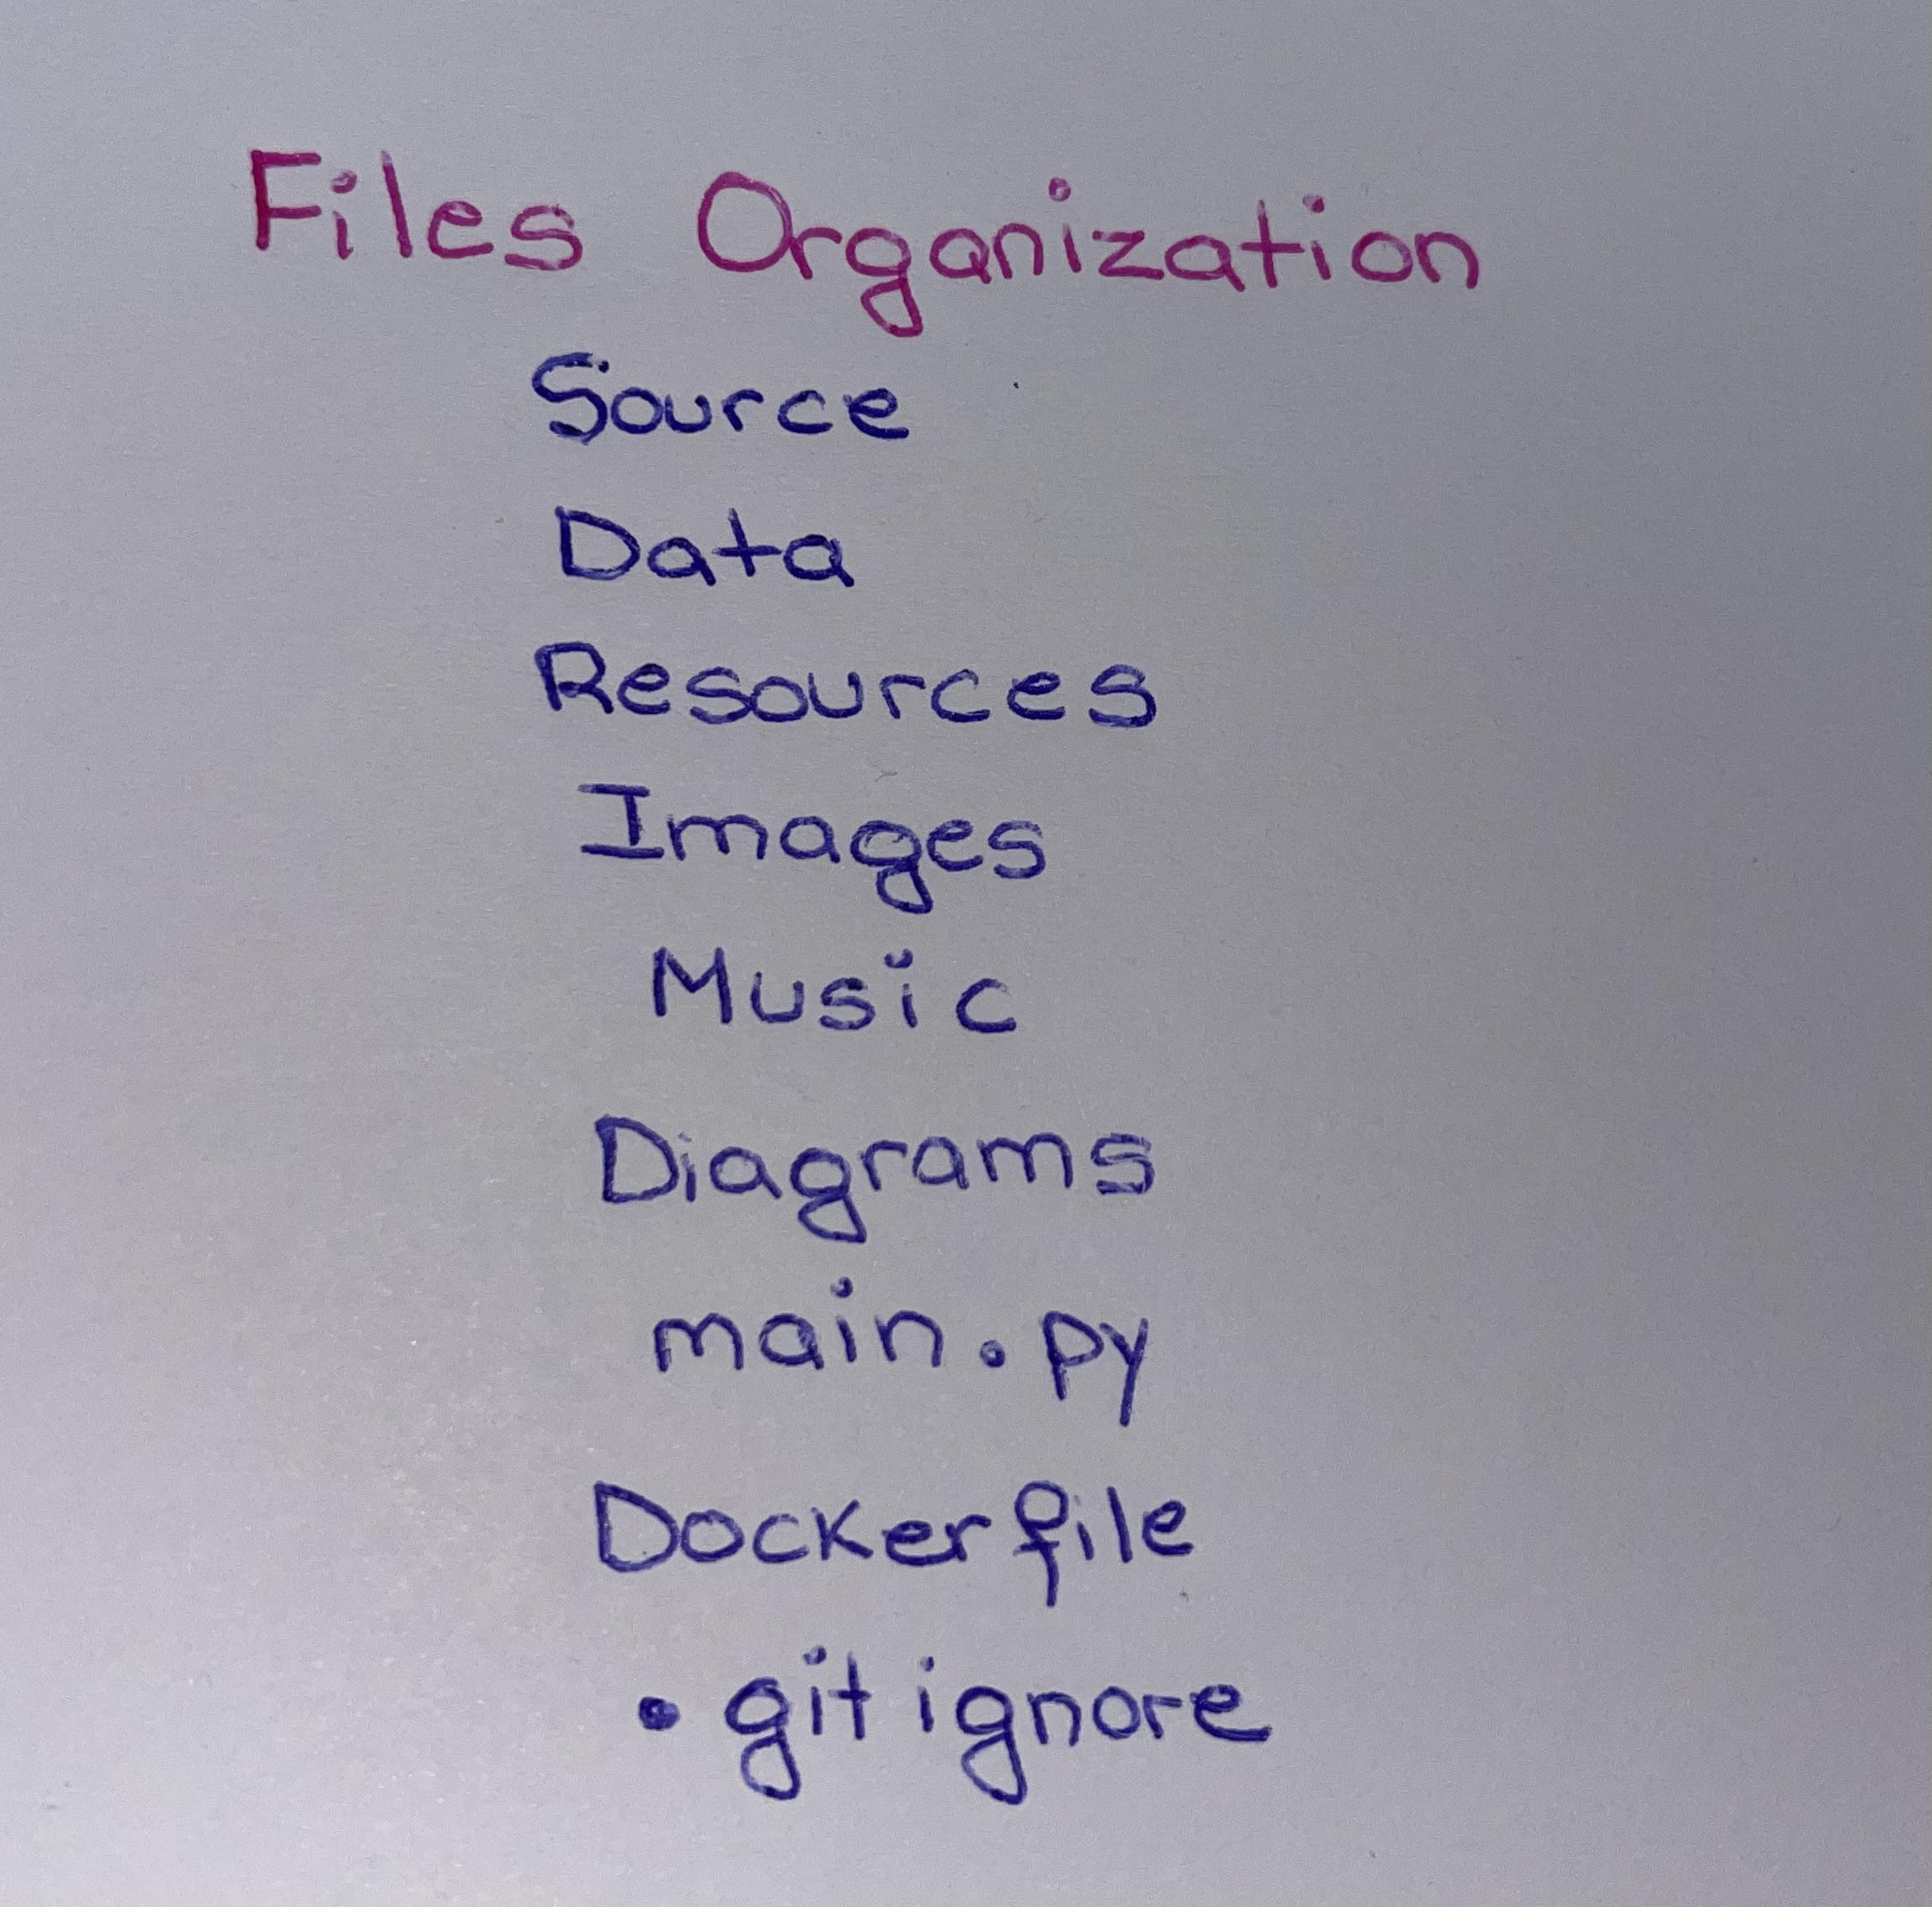 Files Organization
Source
Data
Resources
Images
Music
Diagrams
main.py
Dockerfile
.gitignore